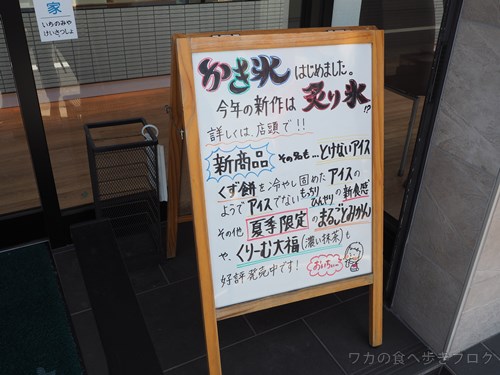 家
いちのみや
けいきつしょ
かき氷はじめました。
今年の新作は炙り氷!?
詳しくは、店頭で!!
新商品 その名も…とけないアイス
くず餅を冷やし固めたアイスの
ようでアイスでないもっちりひんやりの新食感
その他 夏季限定のまるごとみかん
や、くりーむ大福(濃い抹茶)も
好評発売中です!
ワカの食べ歩きブログ